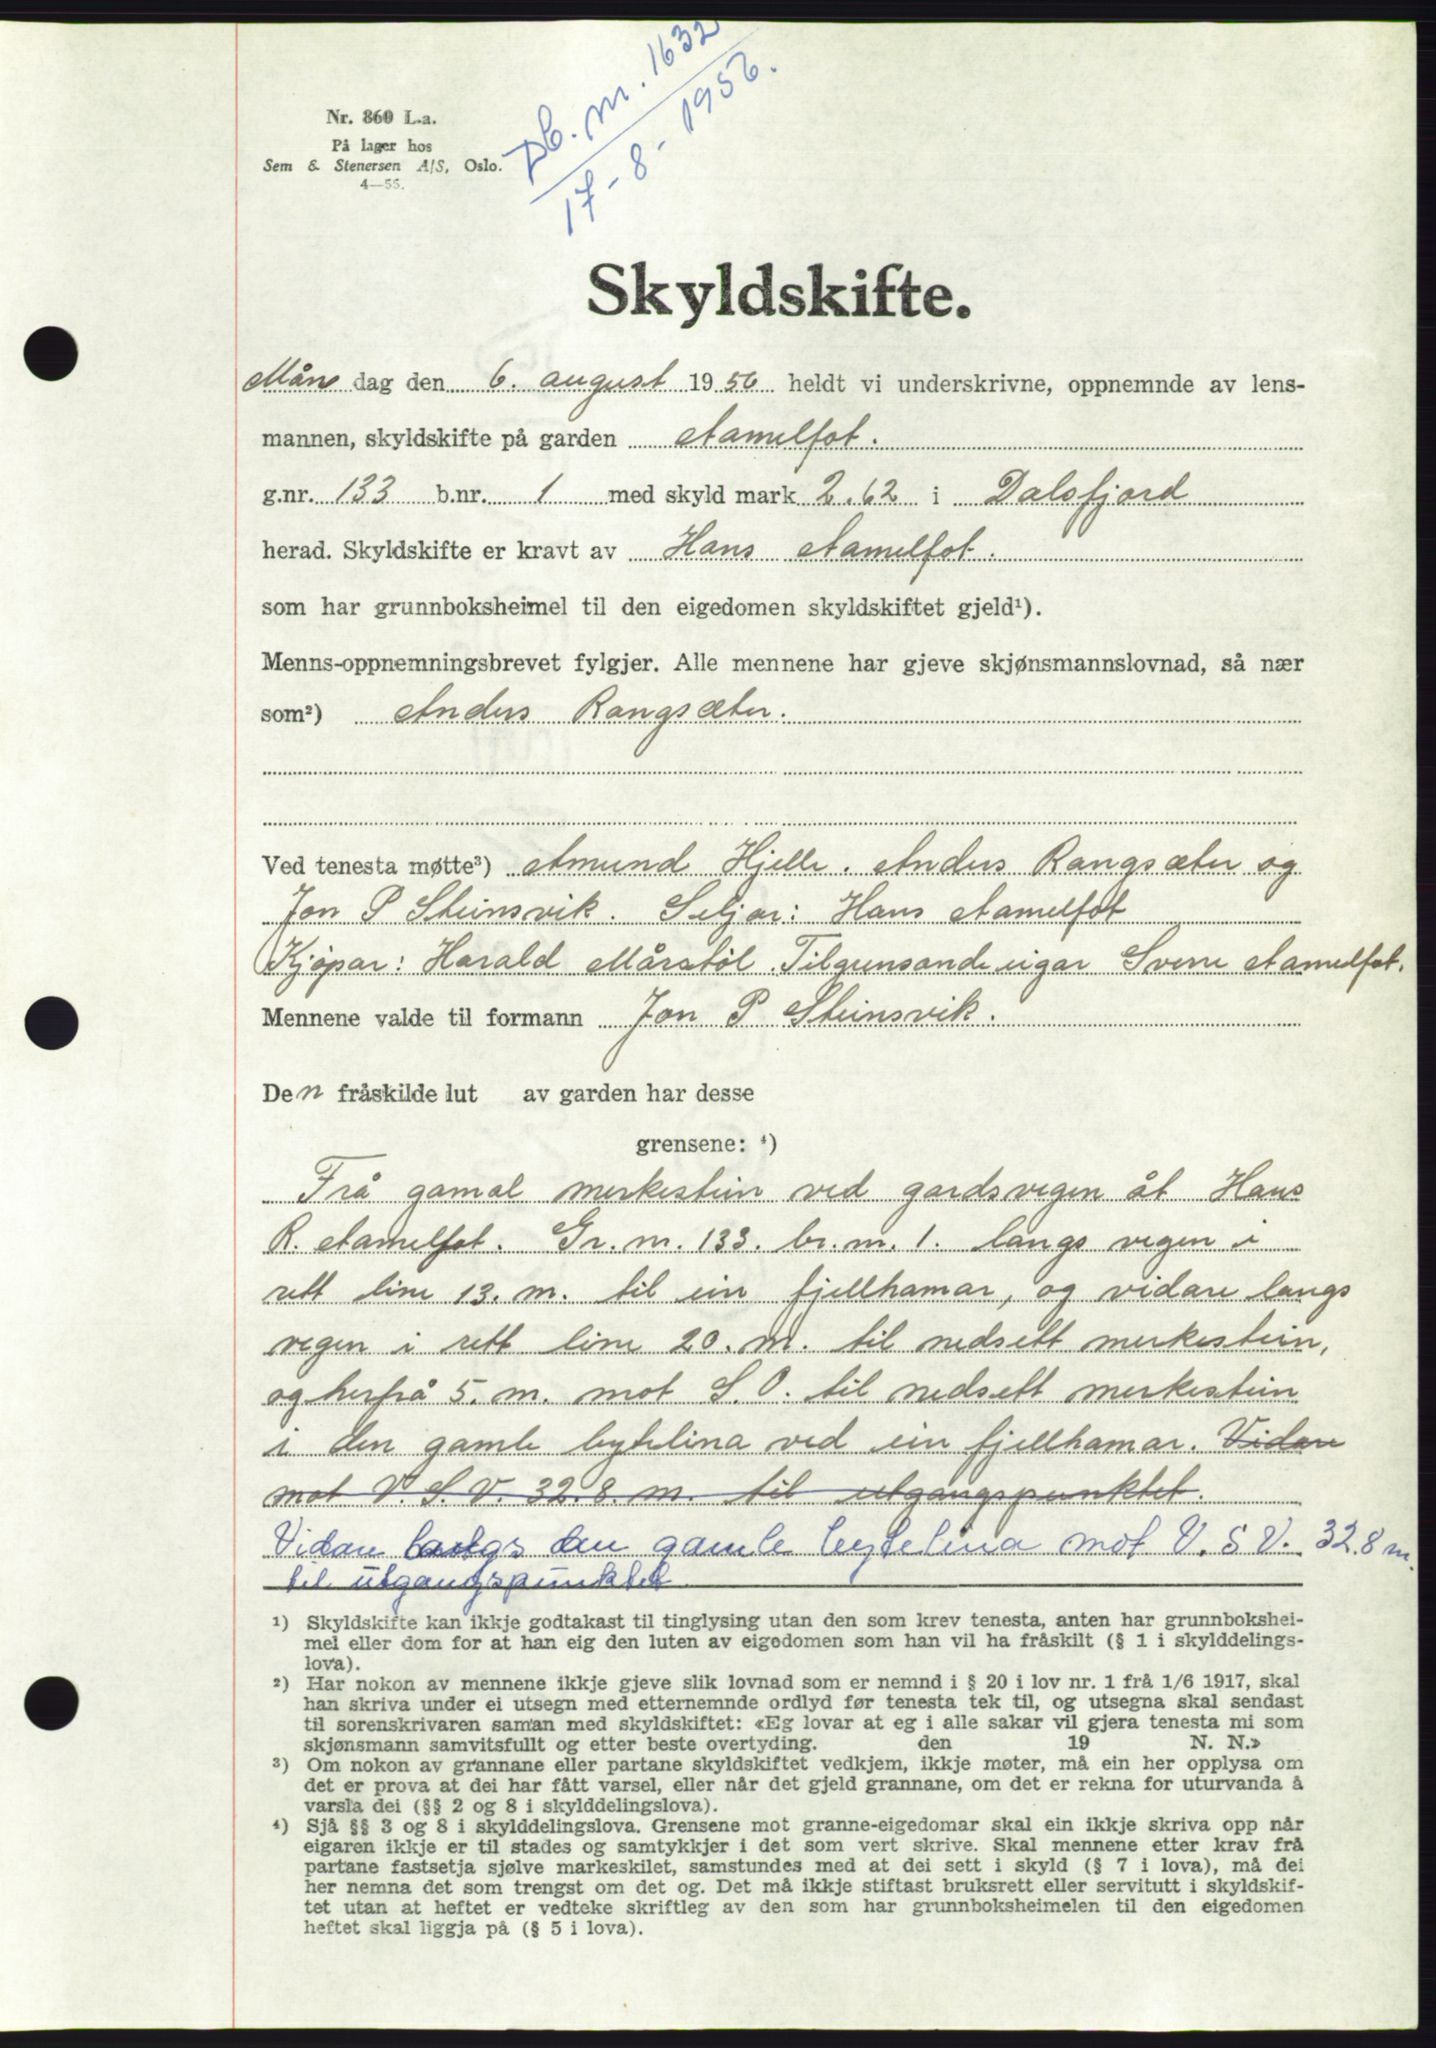 Db. nr. 1632
17-8-1956.
Nr. 860 L.a.
På lager hos
Sem & Stenersen A/S, Oslo.
4—55.
Skyldskifte.
Mån dag den 6. august 1956 heldt vi underskrivne, oppnemnde av lens-
mannen, skyldskifte på garden Aamelfot.
g.nr. 133 b.nr. 1 med skyld mark 2.62 i Dalsfjord
herad. Skyldskifte er kravt av Hans Aamelfot.
som har grunnboksheimel til den eigedomen skyldskiftet gjeld¹).
Menns-oppnemningsbrevet fylgjer. Alle mennene har gjeve skjønsmannslovnad, så nær
som²) Anders Rangsæter.
Ved tenesta møtte³) Amund Hjelle. Anders Rangsæter og
Jon P Steinsvik. Seljar: Hans Aamelfot
Kjøpar: Harald Mårstøl. Tilgrensande eigar Sverre Aamelfot.
Mennene valde til formann Jon P Steinsvik.
Den fråskilde lut av garden har desse
grensene: ⁴)
Frå gamal merkestein ved gardsvegen åt Hans
R. Aamelfot. Gr. nr. 133. br. nr. 1. langs vegen i
rett line 13. m. til ein fjellhamar, og vidare langs
vegen i rett line 20. m. til nedsett merkestein,
og herfrå 5. m. mot S. O. til nedsett merkestein
i den gamle bytelina ved ein fjellhamar. Vidare
mot V. S. V. 32.8. m. til utgangspunktet.
Vidare langs den gamle bytelina mot V. S V. 32.8 m.
til utgangspunktet
¹) Skyldskifte kan ikkje godtakast til tinglysing utan den som krev tenesta, anten har grunnbokshei-
mel eller dom for at han eig den luten av eigedomen som han vil ha fråskilt (§ 1 i skylddelings-
lova).
²) Har nokon av mennene ikkje gjeve slik lovnad som er nemnd i § 20 i lov nr. 1 frå 1/6 1917, skal
han skriva under ei utsegn med etternemnde ordlyd før tenesta tek til, og utsegna skal sendast
til sorenskrivaren saman med skyldskiftet: «Eg lovar at eg i alle sakar vil gjera tenesta mi som
skjønsmann samvitsfullt og etter beste overtyding. den 19 N. N.»
³) Om nokon av grannane eller partane skyldskiftet vedkjem, ikkje møter, må ein her opplysa om
det er prova at dei har fått varsel, eller når det gjeld grannane, om det er rekna for uturvanda å
varsla dei (§§ 2 og 8 i skylddelingslova).
⁴) Sjå §§ 3 og 8 i skylddelingslova. Grensene mot granne-eigedomar skal ein ikkje skriva opp når
eigaren ikkje er til stades og samtykkjer i det som vert skrive. Skal mennene etter krav frå
partane fastsetja sjølve markeskilet, samstundes med at dei sett i skyld (§ 7 i lova), må dei
her nemna det som trengst om det og. Det må ikkje stiftast bruksrett eller servitutt i skyldskif-
tet utan at heftet er vedteke skriftleg av den som har grunnboksheimelen til den eigedomen
heftet skal liggja på (§ 5 i lova).